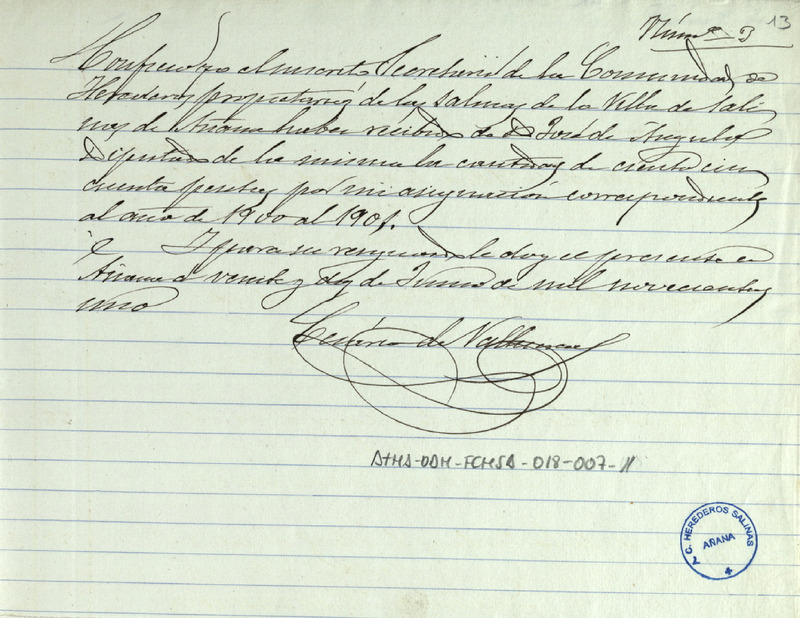 13
Núm.º 3
Confieso yo el infrascrito Secretario de la Comunidad de
Herederos propietarios de las salinas de la Villa de Sali
nas de Añana haber recibido de D José de Angulo
Diputado de la misma la cantidad de ciento cin
cuenta pesetas por mi asignación correspondiente
al año de 1900 al 1901.
Y para su resguardo le doy el presente en
Añana a veinte y dos de Junio de mil novecientos
uno
de
ATHA-DAH-FCHSA-018-007-11
C. HEREDEROS SALINAS
AÑANA